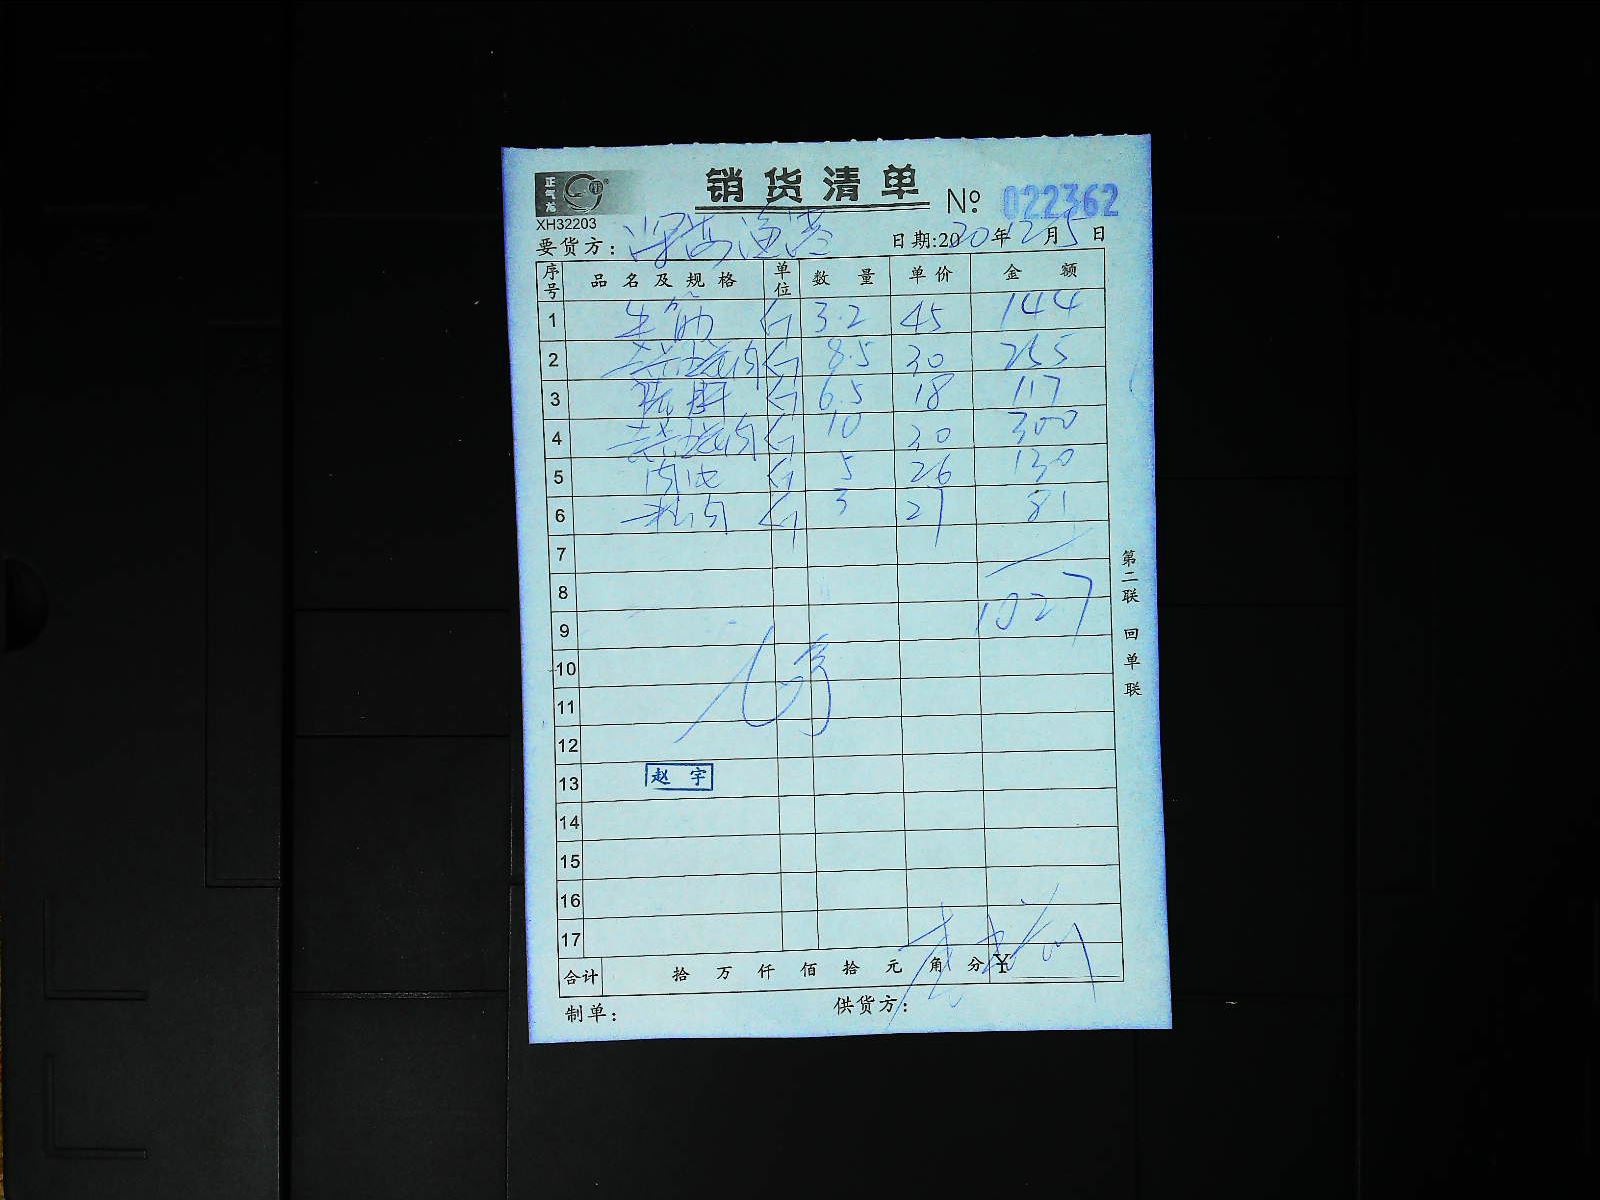 正气龙
销货清单 № 022362
XH32203
要货方: 深海渔港 日期:2020年12月5日
序号 品名及规格 单位 数量 单价 金额
1 牛筋 斤 3.2 45 144
2 去皮五花肉 斤 8.5 30 255
3 斤 6.5 18 117
4 去皮五花肉 斤 10 30 300
5 斤 5 26 130
6 斤 3 27 81
7
8
9 1027
10
11
12
13 赵宇
14
15
16
17
合计 拾万仟佰拾元角分 ¥
制单: 供货方:
第二联 回单联